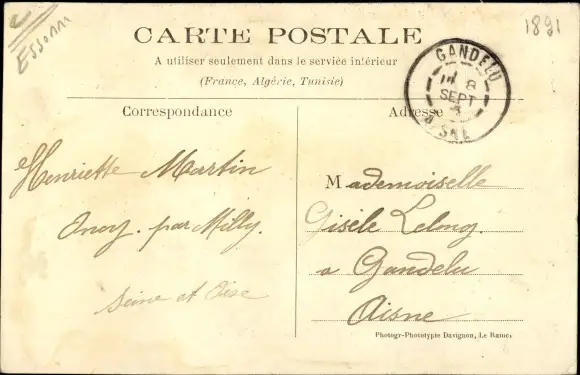 Essonn
1891
CARTE POSTALE
A utiliser seulement dans le service intérieur
(France, Algérie, Tunisie)
GANDELU
8
SEPT
AISNE
Correspondance
Adresse
Henriette Martin
Oncy. par Milly.
Seine et Oise
Mademoiselle
Gisèle Lelong.
a Gandelu
Aisne
Photogr-Phototypie Davignon, Le Raincy